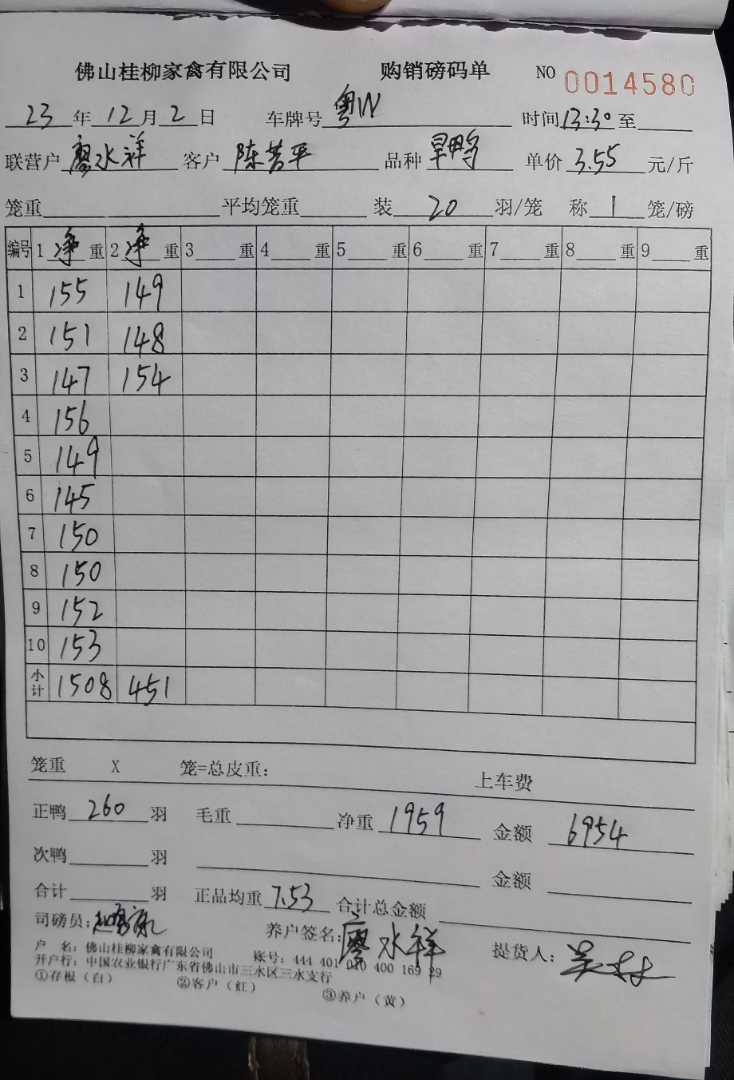 佛山桂柳家禽有限公司 购销磅码单 NO 0014580
23年12月2日 车牌号 粤W 时间13:30至
联营户 廖水祥 客户 陈芳平 品种 旱鸭 单价 3.55 元/斤
笼重 平均笼重 装 20 羽/笼 称 1 笼/磅
编号 1 净 重 2 净 重 3 重 4 重 5 重 6 重 7 重 8 重 9 重
1 155 149
2 151 148
3 147 154
4 156
5 149
6 145
7 150
8 150
9 152
10 153
小计 1508 451
笼重 X 笼=总皮重: 上车费
正鸭 260 羽 毛重 净重 1959 金额 6954
次鸭 羽 金额
合计 羽 正品均重 7.53 合计总金额
司磅员: 养户签名: 廖水祥 提货人:
户 名: 佛山桂柳家禽有限公司 账号: 444 401 010 400 169 29
开户行: 中国农业银行广东省佛山市三水区三水支行
①存根(白) ②客户(红) ③养户(黄)